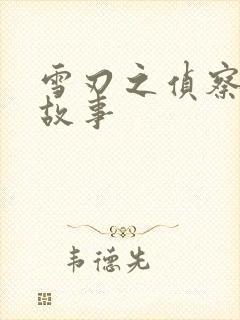 雪刃之偵察
故事
韦德先